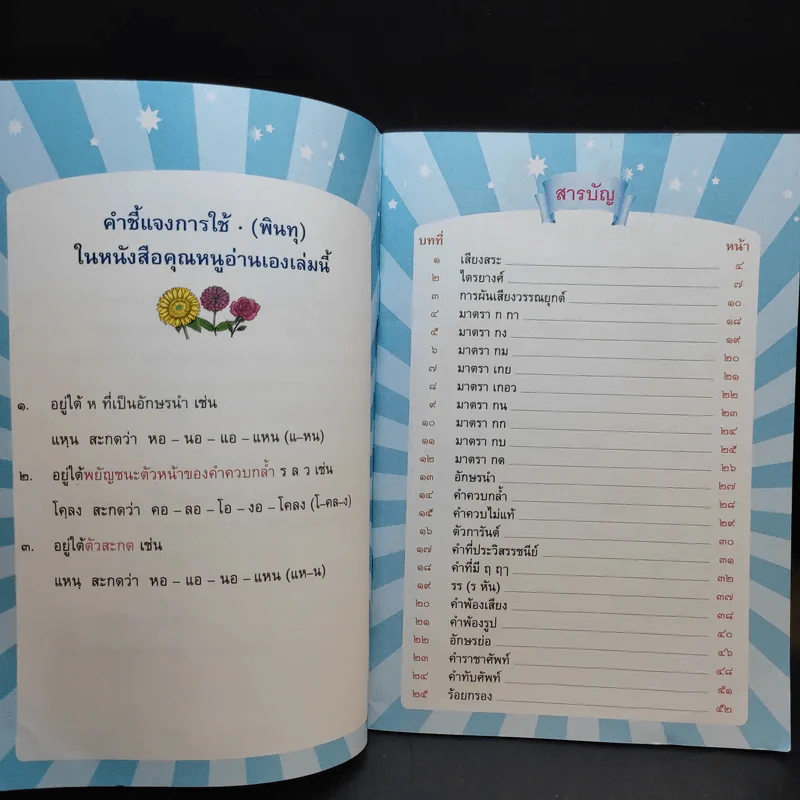 คำชี้แจงการใช้ . (พินทุ)
ในหนังสือคุณหนูอ่านเองเล่มนี้
๑. อยู่ใต้ ห ที่เป็นอักษรนำ เช่น
แหฺน สะกดว่า หอ – นอ – แอ – แหน (แ–หน)
๒. อยู่ใต้พยัญชนะตัวหน้าของคำควบกล้ำ ร ล ว เช่น
โคฺลง สะกดว่า คอ – ลอ – โอ – งอ – โคลง (โ–คล–ง)
๓. อยู่ใต้ตัวสะกด เช่น
แหนฺ สะกดว่า หอ – แอ – นอ – แหน (แห–น)
สารบัญ
บทที่ หน้า
๑ เสียงสระ ๔
๒ ไตรยางศ์ ๗
๓ การผันเสียงวรรณยุกต์ ๑๐
๔ มาตรา ก กา ๑๘
๕ มาตรา กง ๑๙
๖ มาตรา กม ๒๐
๗ มาตรา เกย ๒๑
๘ มาตรา เกอว ๒๒
๙ มาตรา กน ๒๓
๑๐ มาตรา กก ๒๔
๑๑ มาตรา กบ ๒๕
๑๒ มาตรา กด ๒๖
๑๓ อักษรนำ ๒๗
๑๔ คำควบกล้ำ ๒๘
๑๕ คำควบไม่แท้ ๒๙
๑๖ ตัวการันต์ ๓๐
๑๗ คำที่ประวิสรรชนีย์ ๓๑
๑๘ คำที่มี ฤ ฤๅ ๓๒
๑๙ รร (ร หัน) ๓๗
๒๐ คำพ้องเสียง ๓๘
๒๑ คำพ้องรูป ๔๐
๒๒ อักษรย่อ ๔๖
๒๓ คำราชาศัพท์ ๔๘
๒๔ คำทับศัพท์ ๕๑
๒๕ ร้อยกรอง ๕๒